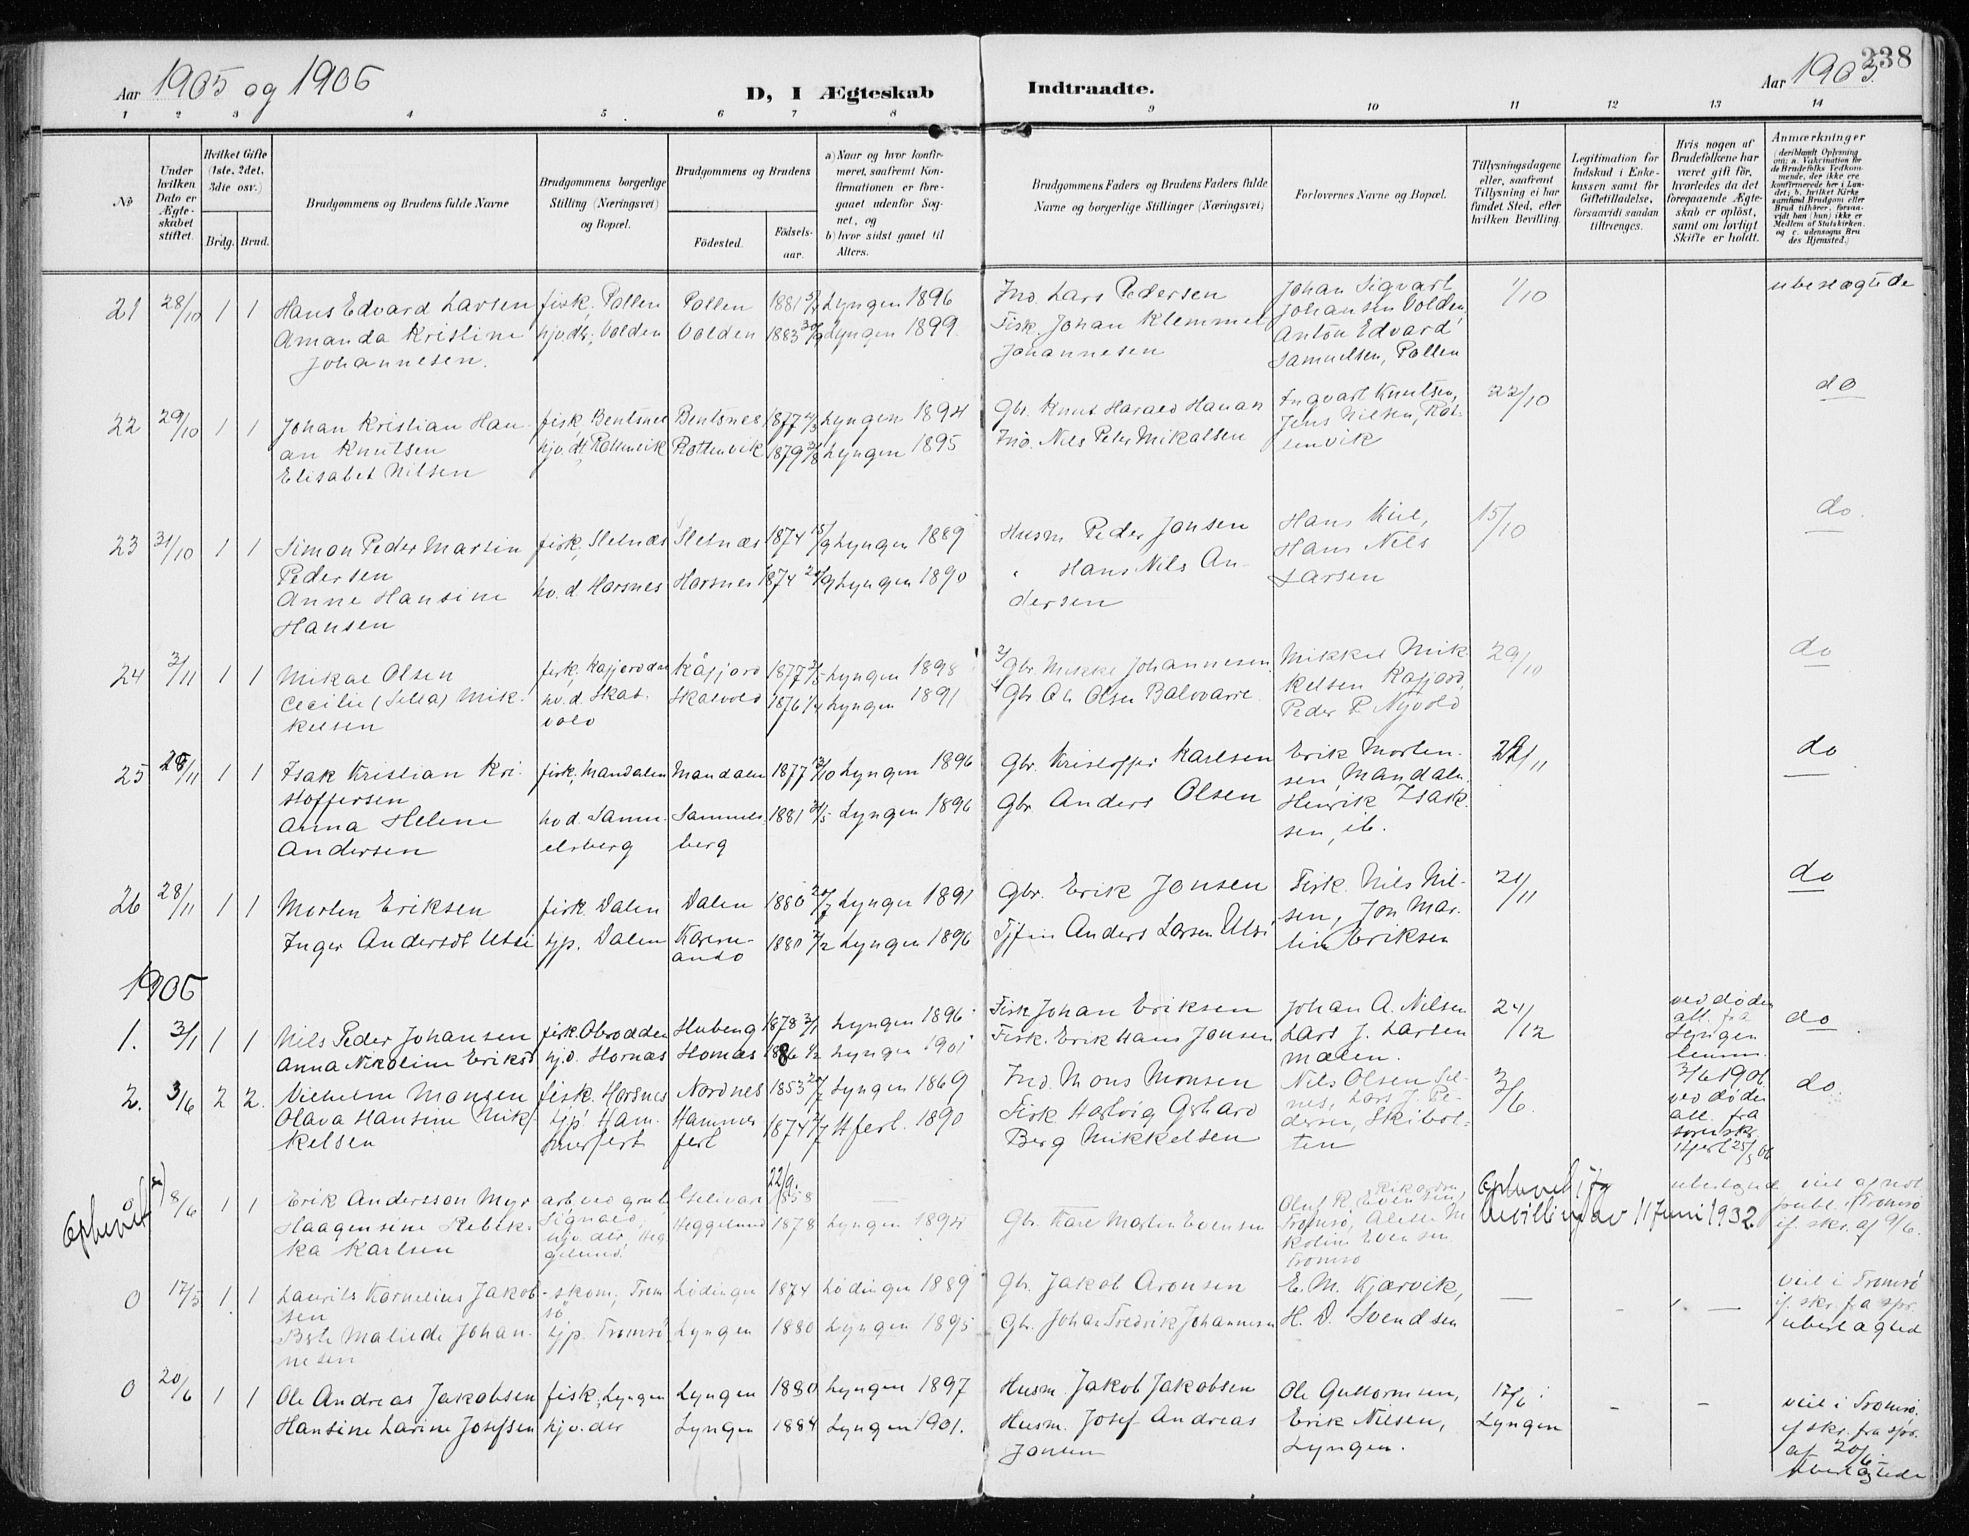 Aar 1905 og 1906
D, I Ægteskab Indtraadte.
Aar 1905
238
1 2 3 4 5 6 7 8 9 10 11 12 13 14
No
Under hvilken Dato er Ægteskabet stiftet.
Hvilket Gifte (1ste, 2det, 3die osv.)
Brdg. Brud.
Brudgommens og Brudens fulde Navne
Brudgommens borgerlige Stilling (Næringsvei) og Bopæl.
Brudgommens og Brudens
Fødested.
Fødselsaar.
a) Naar og hvor konfirmeret, saafremt Konfirmationen er foregaaet udenfor Sognet, og
b) hvor sidst gaaet til Alters.
Brudgommens Faders og Brudens Faders fulde Navne og borgerlige Stillinger (Næringsvei)
Forlovernes Navne og Bopæl.
Tillysningsdagene eller, saafremt Tillysning ei har fundet Sted, efter hvilken Bevilling.
Legitimation for Indskud i Enkekassen samt for Giftetilladelse, forsaavidt saadan tiltrænges.
Hvis nogen af Brudefolkene har været gift før, hvorledes da det foregaaende Ægteskab er opløst, samt om lovligt Skifte er holdt.
Anmærkninger
(deriblandt Oplysning om: a. Vakcination for de Brudefolks Vedkommende, der ikke ere konfirmerede her i Landet; b. hvilket Kirkesamfund Brudgom eller Brud tilhører, forsaavidt han (hun) ikke er Medlem af Statskirken. og c. udensogns Brudes Hjemsted.)
21 28/10 1 1 Hans Edvard Larsen fisk. Pollen Pollen 1881 Lyngen 1896 Ind. Lars Pedersen Johan Sigvart Johansen Volden, 1/10 ubeslægtede
Amanda Kristine Johannesen. hjv. dtr. Volden Volden 1883 Lyngen 1899. Fisk. Johan Klemmet Johannesen Anton Edvard Samuelsen, Pollen
22 29/10 1 1 Johan Kristian Hanan Knutsen fisk Bentsnes Bentsnes 1877 Lyngen 1894 Gbr. Knut Harald Hanan Ingvart Knutsen, 22/10 do
Elisabet Nilsen hjv. dt Rottenvik Rottenvik 1879 Lyngen 1895 Ind. Nils Peter Mikalsen Jens Nilsen, Rottenvik
23 31/10 1 1 Simon Peder Martin Pedersen fisk, Sletnæs Sletnæs 1874 15/9 Lyngen 1889 Husm Peder Jonsen Hans Kiil, 15/10 do.
Anne Hansine Hansen hv. d. Horsnes Horsnes 1874 Lyngen 1890 " Hans Nils Andersen Hans Nils Larsen
24 3/11 1 1 Mikal Olsen fisk. Kåfjord 1877 Lyngen 1898 Gbr. Mikkel Johannesen Mikkel Mikkelsen Kåfjord, 29/10 do
Cecilie (Silla) Mikkelsen hv. d. Skatvold Skatvold 1876 Lyngen 1891 Gbr Ole Olsen Balovarre Peder P. Nyvold
25 28/11 1 1 Isak Kristian Kristoffersen fisk, Mandalen Mandalen 1877 Lyngen 1896 Gbr. Kristoffer Karlsen Erik Mortensen, Mandalen. 22/11 do
Anna Helene Andersen hv d. Samuelsberg Samuelsberg 1881 Lyngen 1896 Gbr Anders Olsen Henrik Isaksen, ib.
26 28/11 1 1 Morten Eriksen fisk. Dalen Dalen 1880 Lyngen 1891 Gbr. Erik Jonsen Fisk. Nils Nilsen, Jon Martin Eriksen 21/11 do
Inger Andersdt Utsi tjp. Dalen Karesuando 1880 Lyngen 1896 Fjfin Anders Larsen Utsi
1906
1. 3/1 1 1 Nils Peder Johansen fisk. 1878 3/1 Lyngen 1896 Fisk Johan Eriksen Johan A. Nilsen 24/12 do
Anna Nikoline Eriksd hj.d. Hornæs Hornæs 1886 Lyngen 1901 Fisk. Erik Hans Jansen Lars J. Larsen
ved døden att. fra Lyngen lensm. 3/6 1906.
2. 3/6 2 2. Vilhelm Monsen fisk. Horsnes Nordnes 1853 Lyngen 1869 Ind. Mons Monsen Nils Olsen 3/6. do.
Olava Hansine Mikkelsen tjp Hammerfest Hammerfest 1874 Hfest. 1890 Fisk Hartvig Gerhard Berg Mikkelsen Lars J. Pedersen, Skibotten
ved døden att. fra sorenskr. Hfest 25/5 06
Ophevet 8/6 1 1 Erik Andersson Myr arb. ved grube Gelivare 22/9. 1858 — Olaf R. Evensen, Tromsø,
Haagensine Rebekka Karlsen Heggelund 1878 Lyngen 1894 Gbr. Kare Martin Evensen
Ophevet ifg bevilling av 11 juni 1932
viet af not. publ. i Tromsø if. skr. af 9/6.
0 17/5 1 1 Laurits Kornelius Jakobsen - skom, Tromsø Lødingen 1874 Lødingen 1889 Gbr. Jakob Aronsen E. M. Kjærvik, — - —
Berte Matilde Johannesen tjp. Tromsø, Lyngen 1880 Lyngen 1895 Gbr. Johan Fredrik Johannesen H. D. Svendsen
viet i Tromsø if. skr. fra spr. ubeslagted
0 20/6 1 1 Ole Andreas Jakobsen fisk, Lyngen Lyngen 1880 Lyngen 1897 Husm. Jakob Jakobsen Ole Guttormsen, 17/6 i Lyngen - -
Hansine Larine Josefsen hjv. der Lyngen 1884 Lyngen 1901. Husm. Josef Andreas Jonsen Erik Nilsen, Lyngen.
viet i Tromsø. if skr. fra spr. af 20/6. ubeslagtede